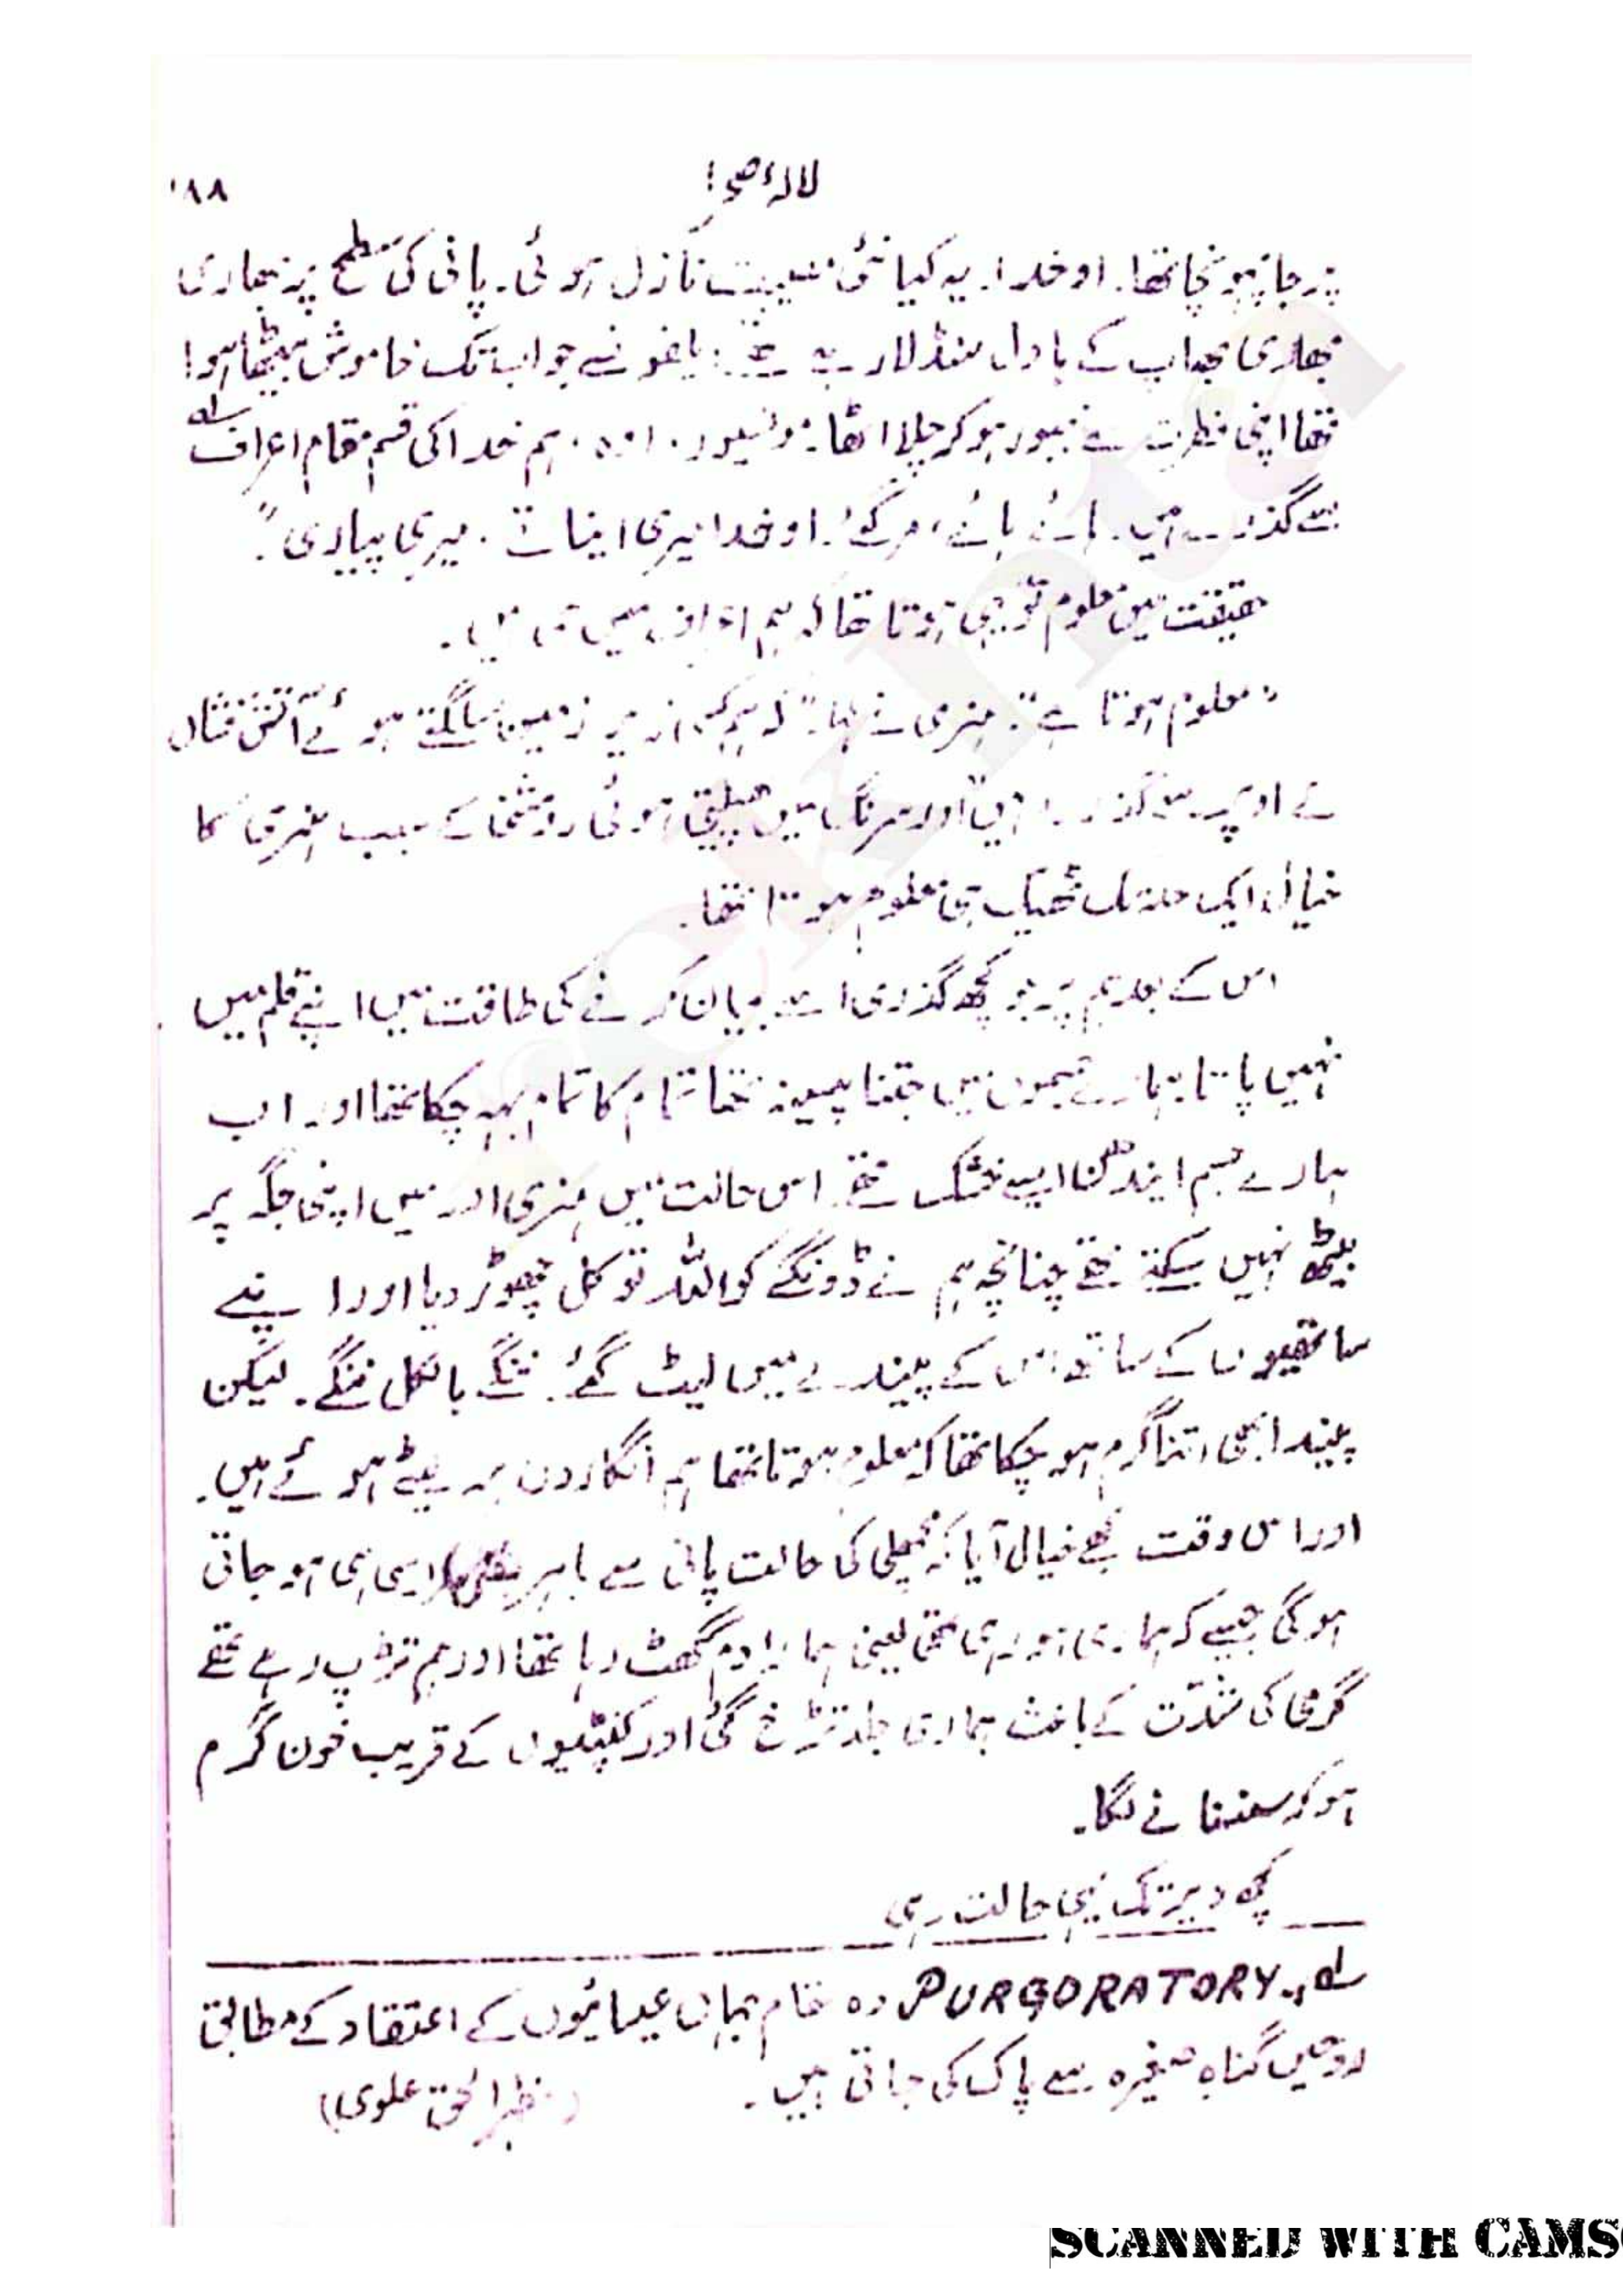 لالہء صحرا ۱۸۸
پر جا پہونچا تھا. او خدا. یہ کیا نئی مصیبت نازل ہوئی. پانی کی سطح پر بھاری
بھاری بھاپ کے بادل منڈلا رہے تھے. یاغونے جواب تک خاموش بیٹھا ہوا
تھا اپنی فطرت سے مجبور ہو کر چلا اٹھا: موسیور. اوہ. ہم خدا کی قسم مقام اعراف لہ
سے گذر رہے ہیں. ہائے ہائے، مر گئے. او خدا میری اینات. میری پیاری".
حقیقت میں معلوم تو یہی ہوتا تھا کہ ہم اعراف میں ہی ہیں.
"معلوم ہوتا ہے". ہنری نے کہا. "کہ ہم کسی زیر زمین سلگتے ہوئے آتش فشاں
کے اوپر سے گذر رہے ہیں" اور سرنگ میں پھیلتی ہوئی روشنی کے سبب ہنری کا
خیال ایک حد تک ٹھیک ہی معلوم ہوتا تھا.
اس کے بعد ہم پر جو کچھ گذری اسے بیان کرنے کی طاقت میں اپنے قلم میں
نہیں پاتا. ہمارے جسموں میں جتنا پسینہ تھا تمام کا تمام بہہ چکا تھا اور اب
ہمارے جسم ایندھن ایسے خشک تھے. اس حالت میں ہنری اور میں اپنی جگہ پر
بیٹھ نہیں سکتے تھے چنانچہ ہم نے ڈونگے کو اللہ توکل چھوڑ دیا اور اپنے
ساتھیوں کے ساتھ اس کے پیندے میں لیٹ گئے. ننگے بالکل ننگے. لیکن
پیندا بھی اتنا گرم ہو چکا تھا کہ معلوم ہوتا تھا ہم انگاروں پر لیٹے ہوئے ہیں.
اور اس وقت مجھے خیال آیا کہ مچھلی کی حالت پانی سے باہر ایسی ہی ہو جاتی
ہو گی جیسے کہ ہماری ہو رہی تھی یعنی ہمارا دم گھٹ رہا تھا اور ہم تڑپ رہے تھے
گرمی کی شدّت کے باعث ہماری جلد تڑخ گئی اور کنپٹیوں کے قریب خون گرم
ہو کر سنسنانے لگا.
کچھ دیر تک یہی حالت رہی
لہ PURGORATORY وہ مقام جہاں عیسائیوں کے اعتقاد کے مطابق
روحیں گناہ صغیرہ سے پاک کی جاتی ہیں. (مظہر الحق علوی)
SCANNED WITH CAMS